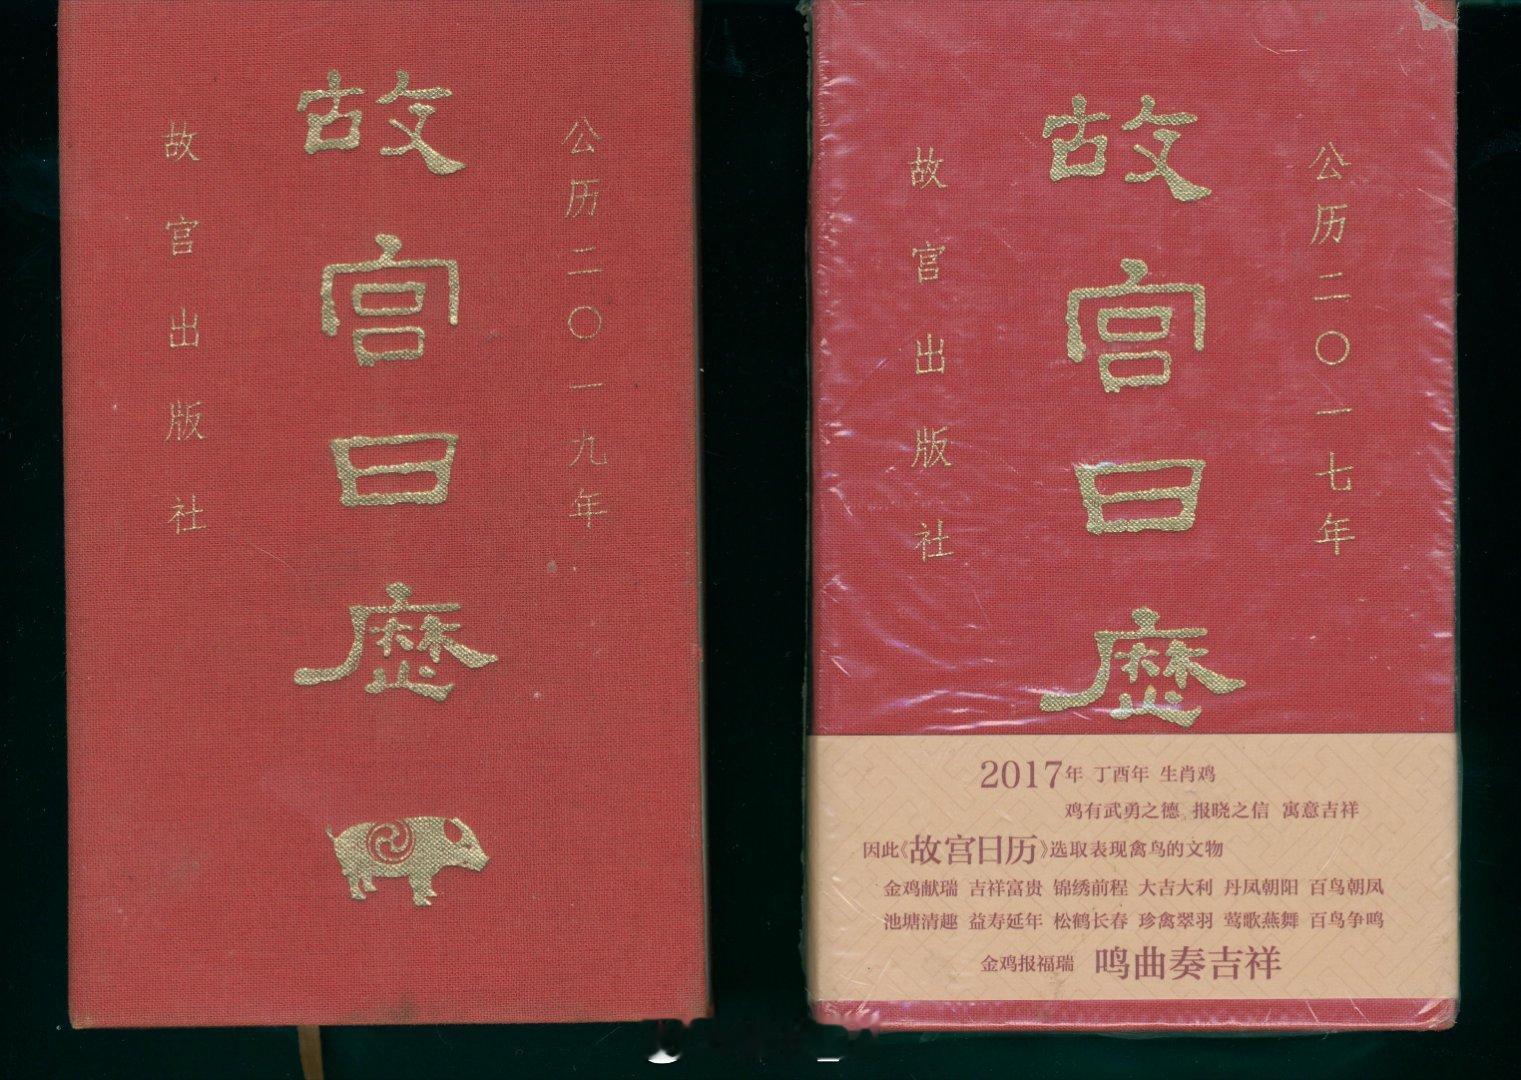 公历二〇一九年
故宫日历
故宫出版社
公历二〇一七年
故宫日历
故宫出版社
2017年 丁酉年 生肖鸡
鸡有武勇之德 报晓之信 寓意吉祥
因此《故宫日历》选取表现禽鸟的文物
金鸡献瑞 吉祥富贵 锦绣前程 大吉大利 丹凤朝阳 百鸟朝凤
池塘清趣 益寿延年 松鹤长春 珍禽翠羽 莺歌燕舞 百鸟争鸣
金鸡报福瑞 鸣曲奏吉祥